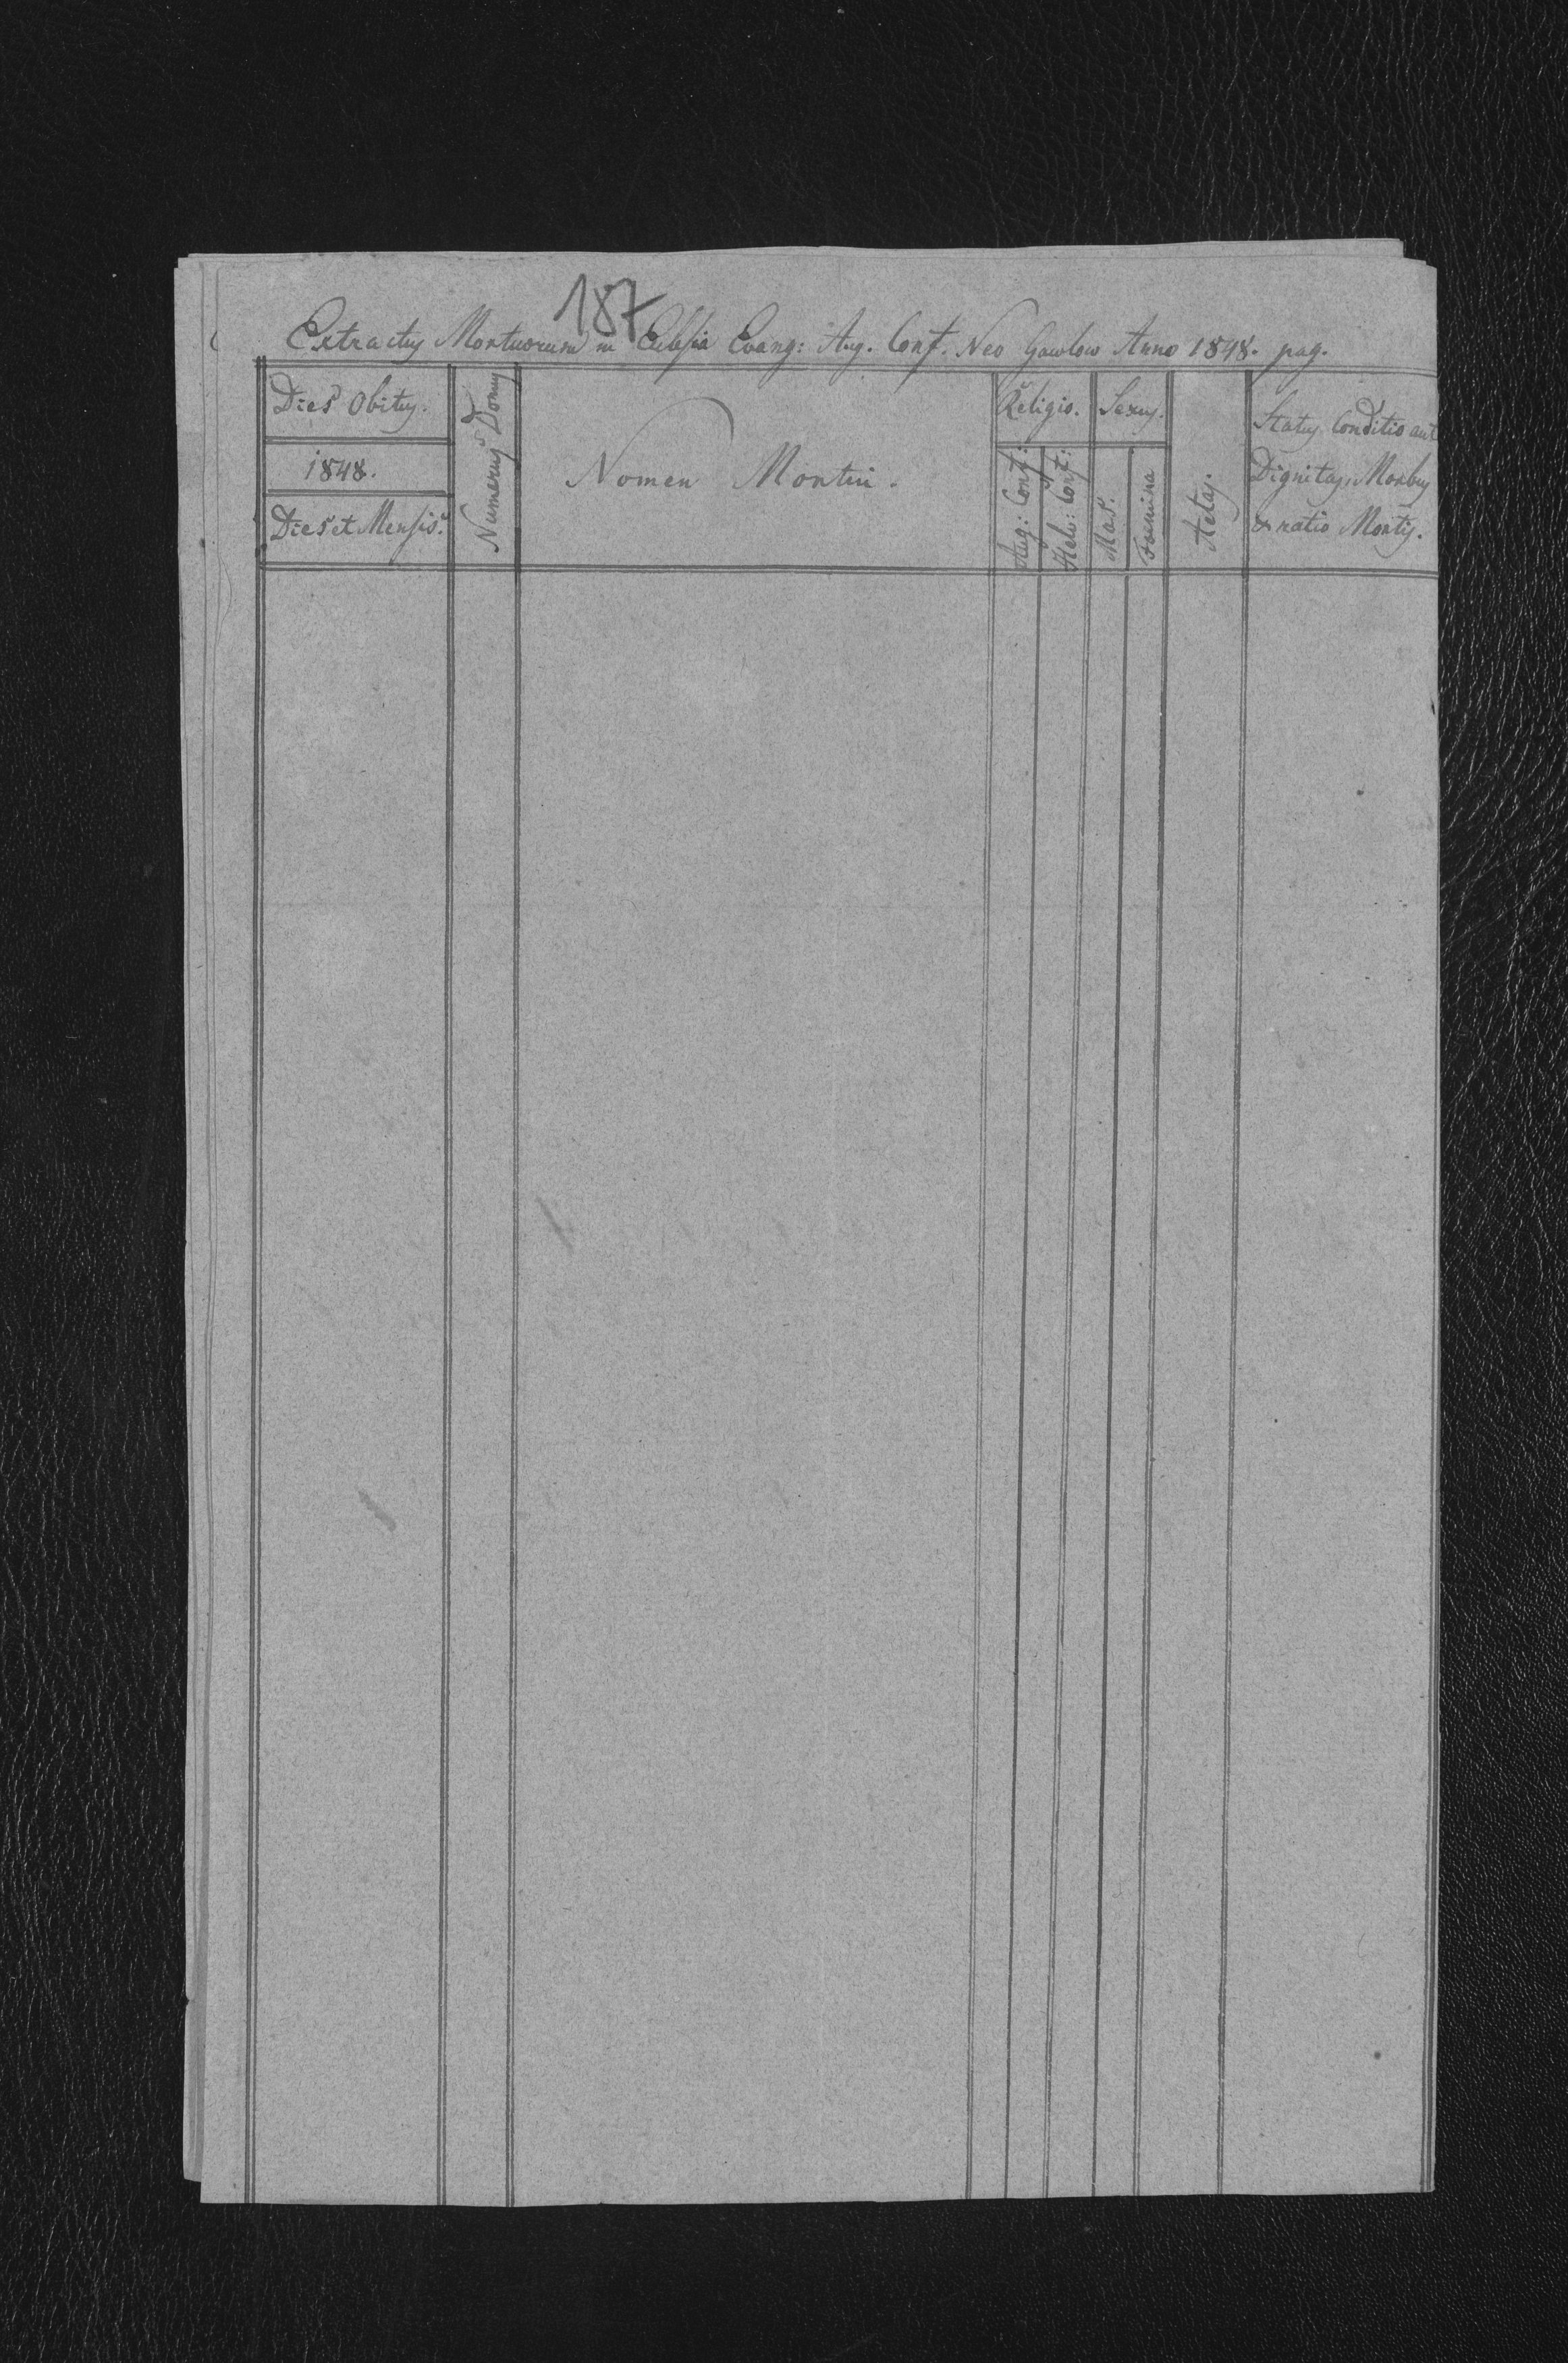 187
Extractus Mortuorum in Eclesia Evang: Aug. Conf. Neo Gawlow Anno 1848. pag.
Dies Obitus.
1848.
Dies et Mensis.
Numerus Domus
Nomen Mortui.
Religio.
Aug: Conf:
Helv: Conf:
Sexus.
Mas.
Foemina
Aetas.
Status Conditio aut
Dignitas, Morbus
& ratio Mortis.